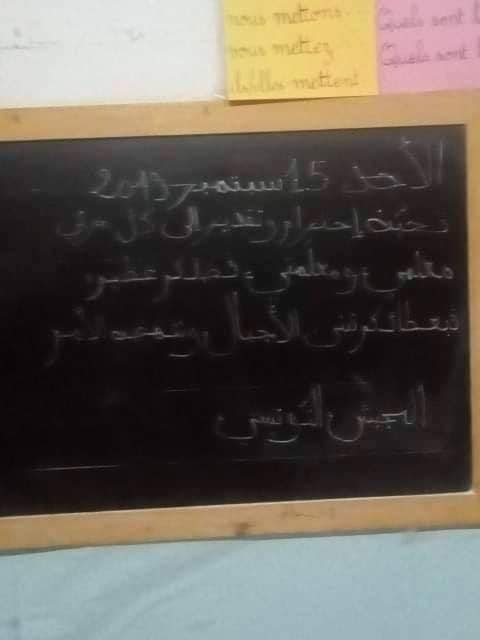 nous mettons
vous mettez
ils/elles mettent
Quels sont l
Quels sont l
الأحد 15 سبتمبر 2013
تحية إحترام وتقدير إلى كل مربي
معلمي ومعلمتي
فبعطائكم تبنى الأجيال
الجيش التونسي